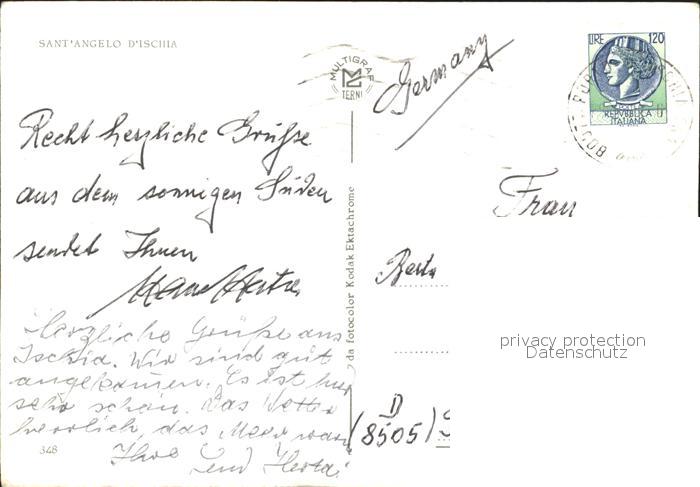 SANT'ANGELO D'ISCHIA
MULTIGRAF
TERNI
LIRE 120
REPVBBLICA
ITALIANA
Germany
Recht herzliche Grüße
aus dem sonnigen Süden
sendet Ihnen
Herzliche Grüße aus
Ischia. Wir sind gut
angekommen. Es ist hier
sehr schön. Das Wetter
herrlich, das Meer warm
Ihre
und Herta
348
da fotocolor Kodak Ektachrome
Frau
Berta
privacy protection
Datenschutz
D
(8505)